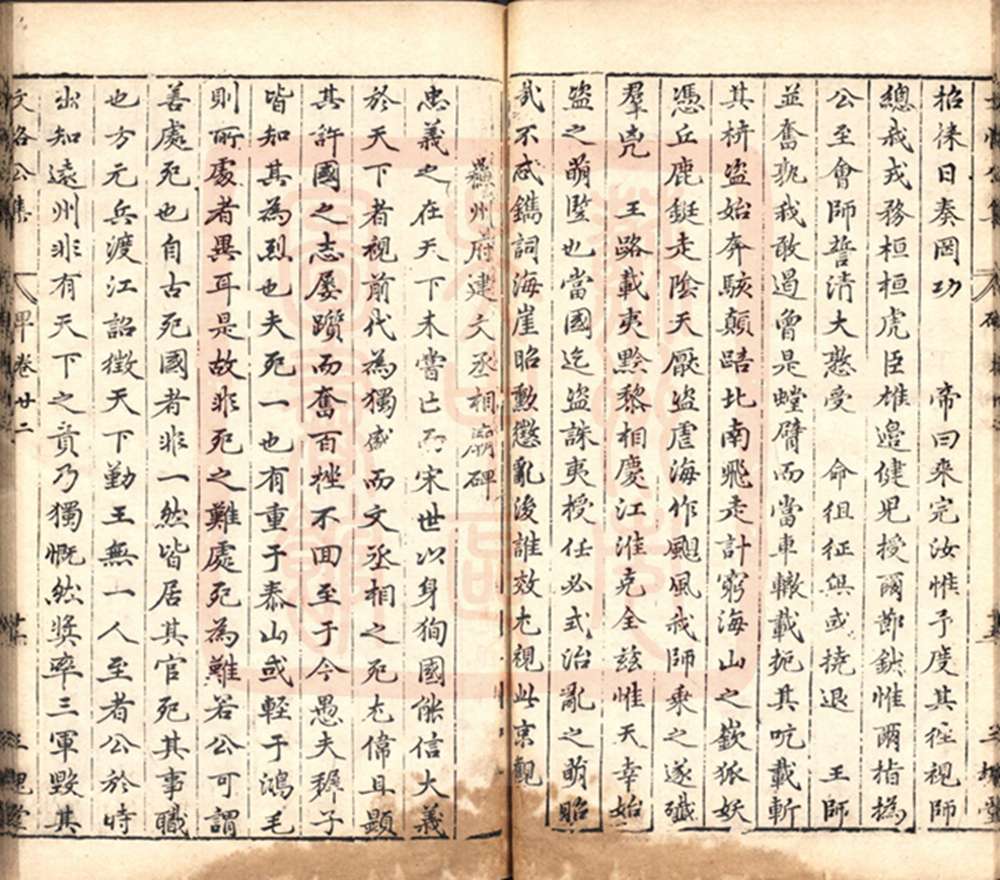 招徠日奏罔功　帝曰來完汝惟予度其徃視師
總戎戎務桓桓虎臣雄邊健兒授爾節鉞惟爾指撝
公至會師誓清大憝受　命徂征與或撓退　王師
並奮孰我敢遏曾是螳臂而當車轍載扼其吭載斬
其桥盜始奔駭顛踣北南飛走計窮海山之嶔狐妖
憑丘鹿鋌走陰天厭盜虐海作颶風我師乘之遂殱
羣兇　王路載夷黔黎相慶江淮克全兹惟天幸始
盜之萌豎也當國迄盜誅夷授任必式治亂之萌貽
哉不忒鐫詞海崖昭勲懲亂後誰效尤視此京觀
蘇州府建文丞相廟碑
忠義之在天下未嘗亡而宋世以身狥國能信大義
於天下者視前代為獨盛而文丞相之死尤偉且顯
其許國之志屡躓而奮百挫不回至于今愚夫穉子
皆知其為烈也夫死一也有重于泰山或軽于鴻毛
則所處者異耳是故非死之難處死為難若公可謂
善處死也自古死國者非一然皆居其官死其事職
也方元兵渡江詔徵天下勤王無一人至者公於時
出知遠州非有天下之責乃獨慨然奨率三軍毀其
文恪公集　碑卷廿二